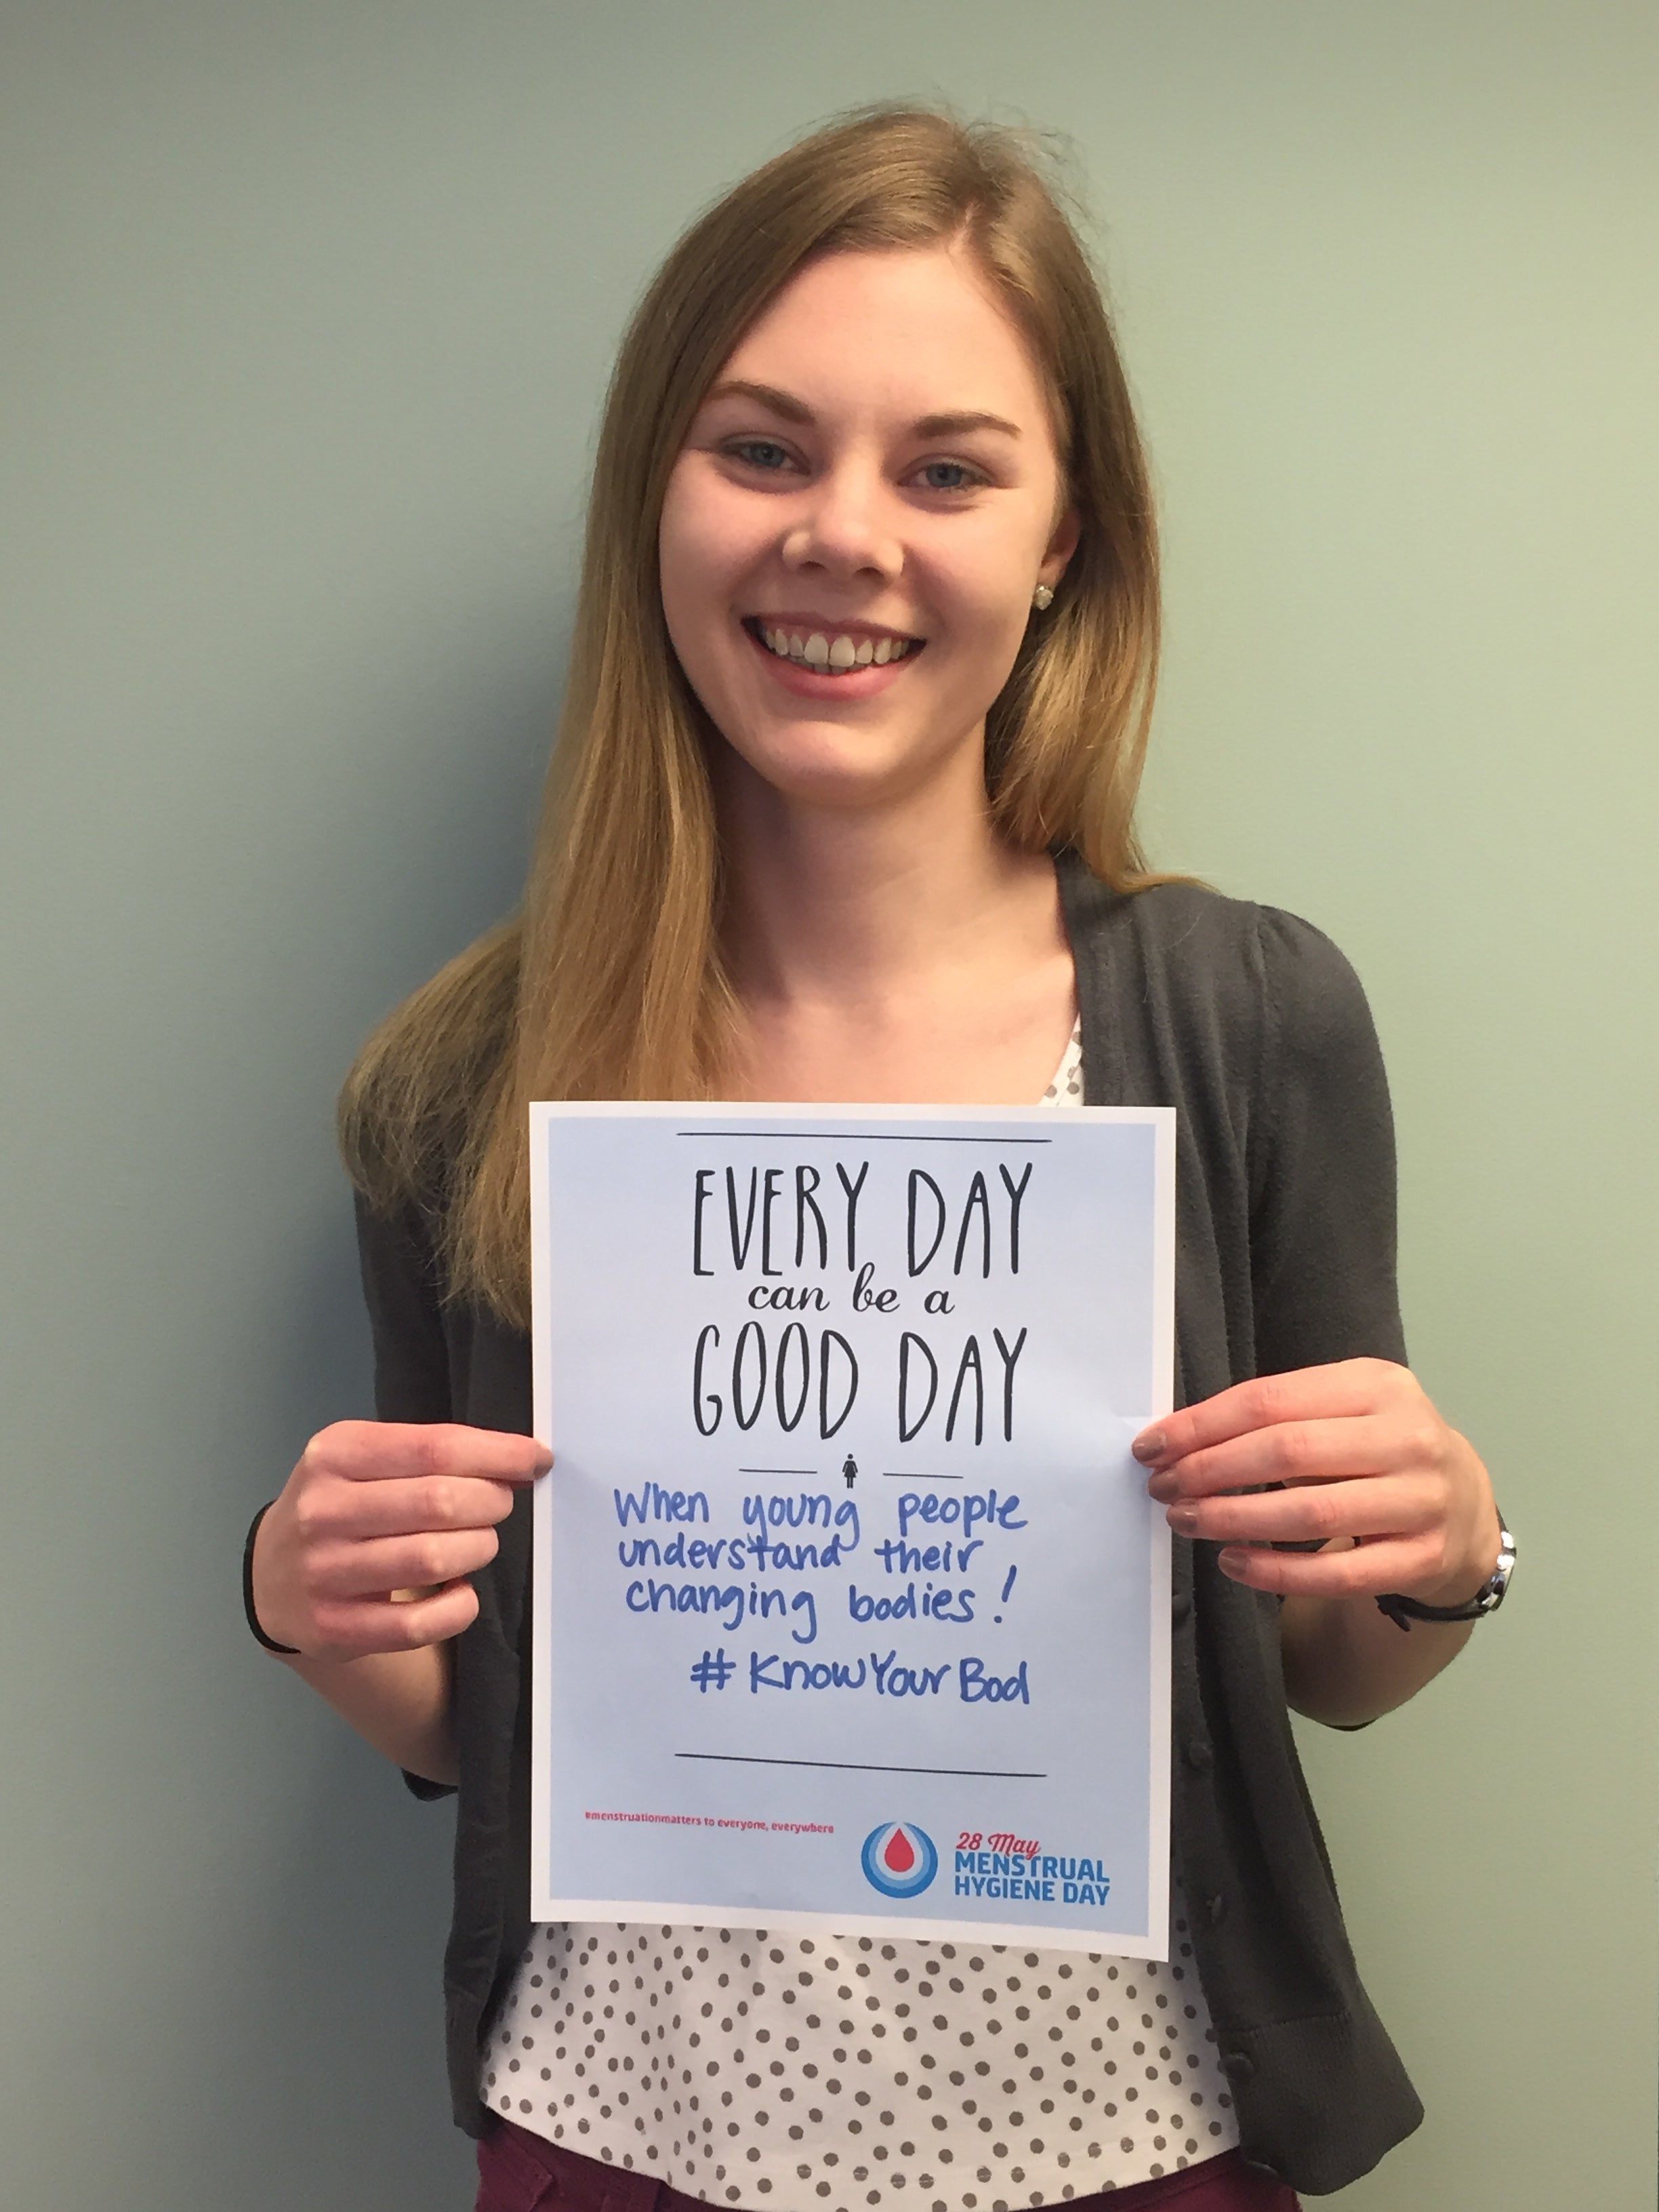 EVERY DAY
can be a
GOOD DAY
When young people
understand their
changing bodies!
#KnowYourBod
#menstruationmatters to everyone, everywhere
28 May
MENSTRUAL
HYGIENE DAY